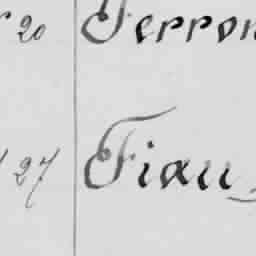 20 Ferron
27 Fiau